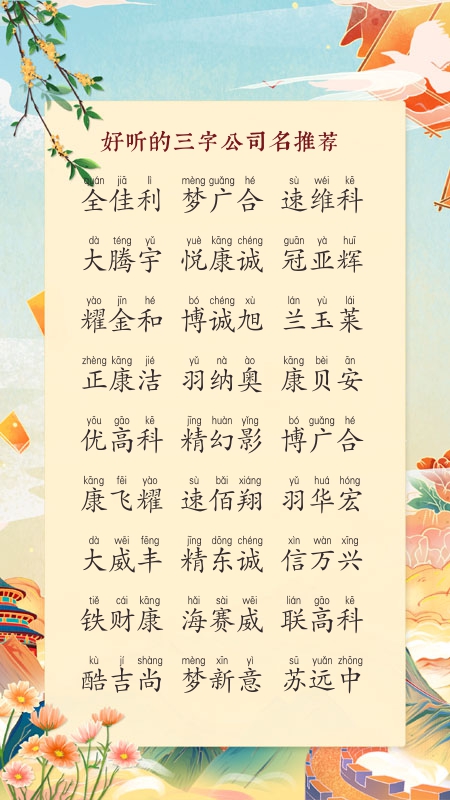 好听的三字公司名推荐
quán jiā lì mèng guǎng hé sù wéi kē
全佳利 梦广合 速维科
dà téng yǔ yuè kāng chéng guān yà huī
大腾宇 悦康诚 冠亚辉
yào jīn hé bó chéng xù lán yù lái
耀金和 博诚旭 兰玉莱
zhèng kāng jié yǔ nà ào kāng bèi ān
正康洁 羽纳奥 康贝安
yōu gāo kē jīng huàn yǐng bó guǎng hé
优高科 精幻影 博广合
kāng fēi yào sù bǎi xiáng yǔ huá hóng
康飞耀 速佰翔 羽华宏
dà wēi fēng jīng dōng chéng xìn wàn xīng
大威丰 精东诚 信万兴
tiě cái kāng hǎi sài wēi lián gāo kē
铁财康 海赛威 联高科
kù jí shàng mèng xīn yì sū yuǎn zhōng
酷吉尚 梦新意 苏远中